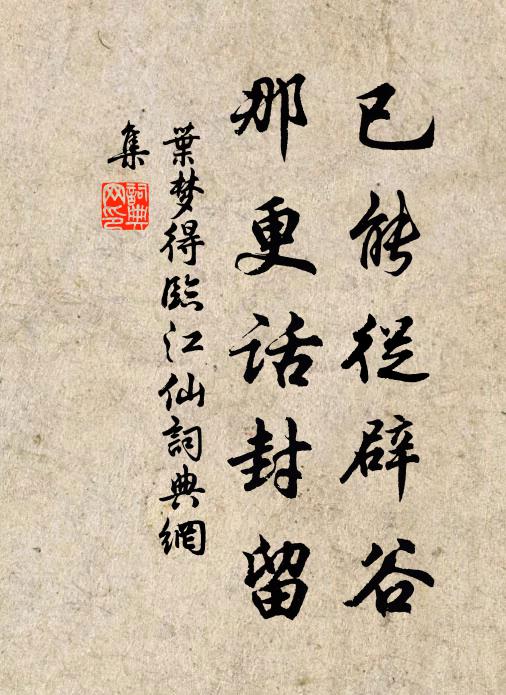 已能從辟谷
那更話封留
葉梦得臨江仙詞典網
集
詞典网印